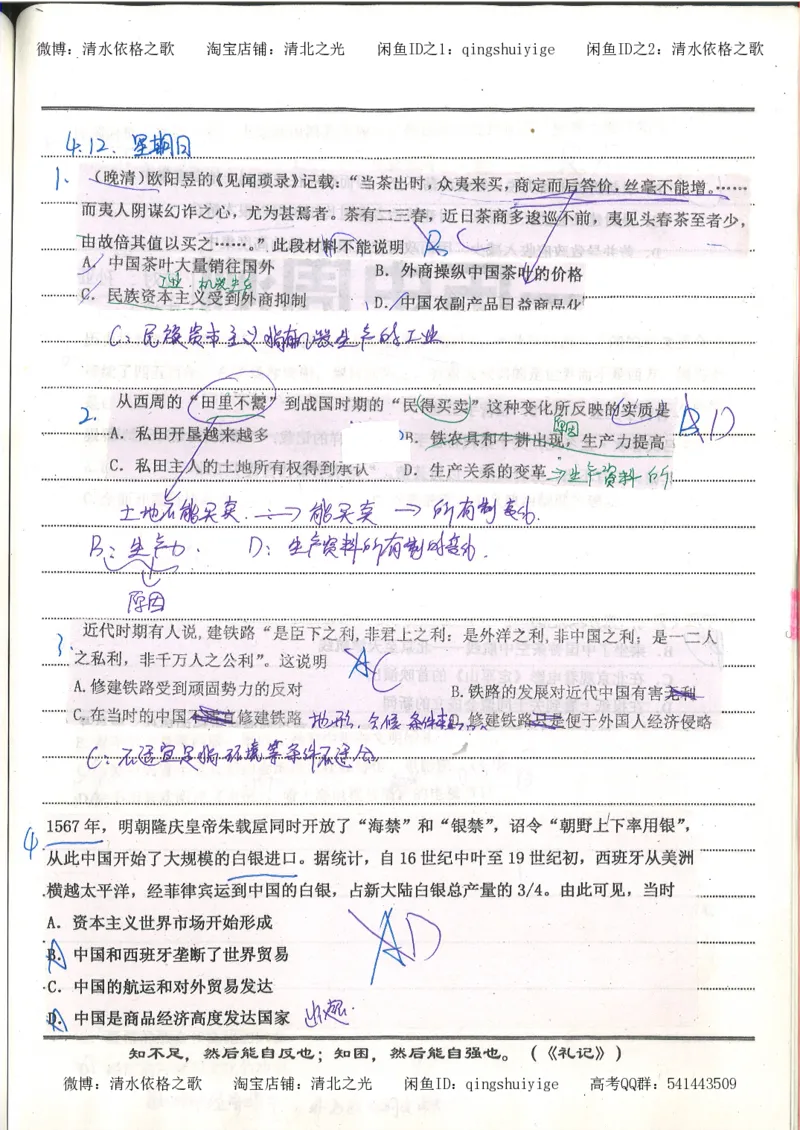 微博：清水依格之歌 淘宝店铺：清北之光 闲鱼ID之1：qingshuiyige 闲鱼ID之2：清水依格之歌
4.12. 星期日
1. （晚清）欧阳昱的《见闻琐录》记载：“当茶出时，众夷来买，商定而后答价，丝毫不能增。……
而夷人阴谋幻诈之心，尤为甚焉者。茶有二三春，近日茶商多逡巡不前，夷见头春茶至者少，
由故倍其值以买之……。”此段材料不能说明 B C
A. 中国茶叶大量销往国外 B. 外商操纵中国茶叶的价格
工业，机器生产
C. 民族资本主义受到外商抑制 D. 中国农副产品日益商品化
C：民族资本主义指有机器生产的工业
2. 从西周的“田里不鬻”到战国时期的“民得买卖”这种变化所反映的实质是 B D
原因
A. 私田开垦越来越多 B. 铁农具和牛耕出现，生产力提高
C. 私田主人的土地所有权得到承认 D. 生产关系的变革 → 生产资料所
土地不能买卖 → 能买卖 → 所有制变化.
B：生产力. D：生产资料所有制的变化.
原因
3. 近代时期有人说，建铁路“是臣下之利，非君上之利；是外洋之利，非中国之利；是一二人
之私利，非千万人之公利”。这说明 A C
A. 修建铁路受到顽固势力的反对 B. 铁路的发展对近代中国有害无利
C. 在当时的中国不适宜修建铁路 地形，气候 条件 修建铁路只是便于外国人经济侵略
C：不适宜是指环境等条件不适合
4. 1567年，明朝隆庆皇帝朱载垕同时开放了“海禁”和“银禁”，诏令“朝野上下率用银”，
从此中国开始了大规模的白银进口。据统计，自16世纪中叶至19世纪初，西班牙从美洲
横越太平洋，经菲律宾运到中国的白银，占新大陆白银总产量的3/4。由此可见，当时
A. 资本主义世界市场开始形成 A D
B. 中国和西班牙垄断了世界贸易
C. 中国的航运和对外贸易发达
D. 中国是商品经济高度发达国家 出题.
知不足，然后能自反也；知困，然后能自强也。（《礼记》）
微博：清水依格之歌 淘宝店铺：清北之光 闲鱼ID：qingshuiyige 高考QQ群：541443509